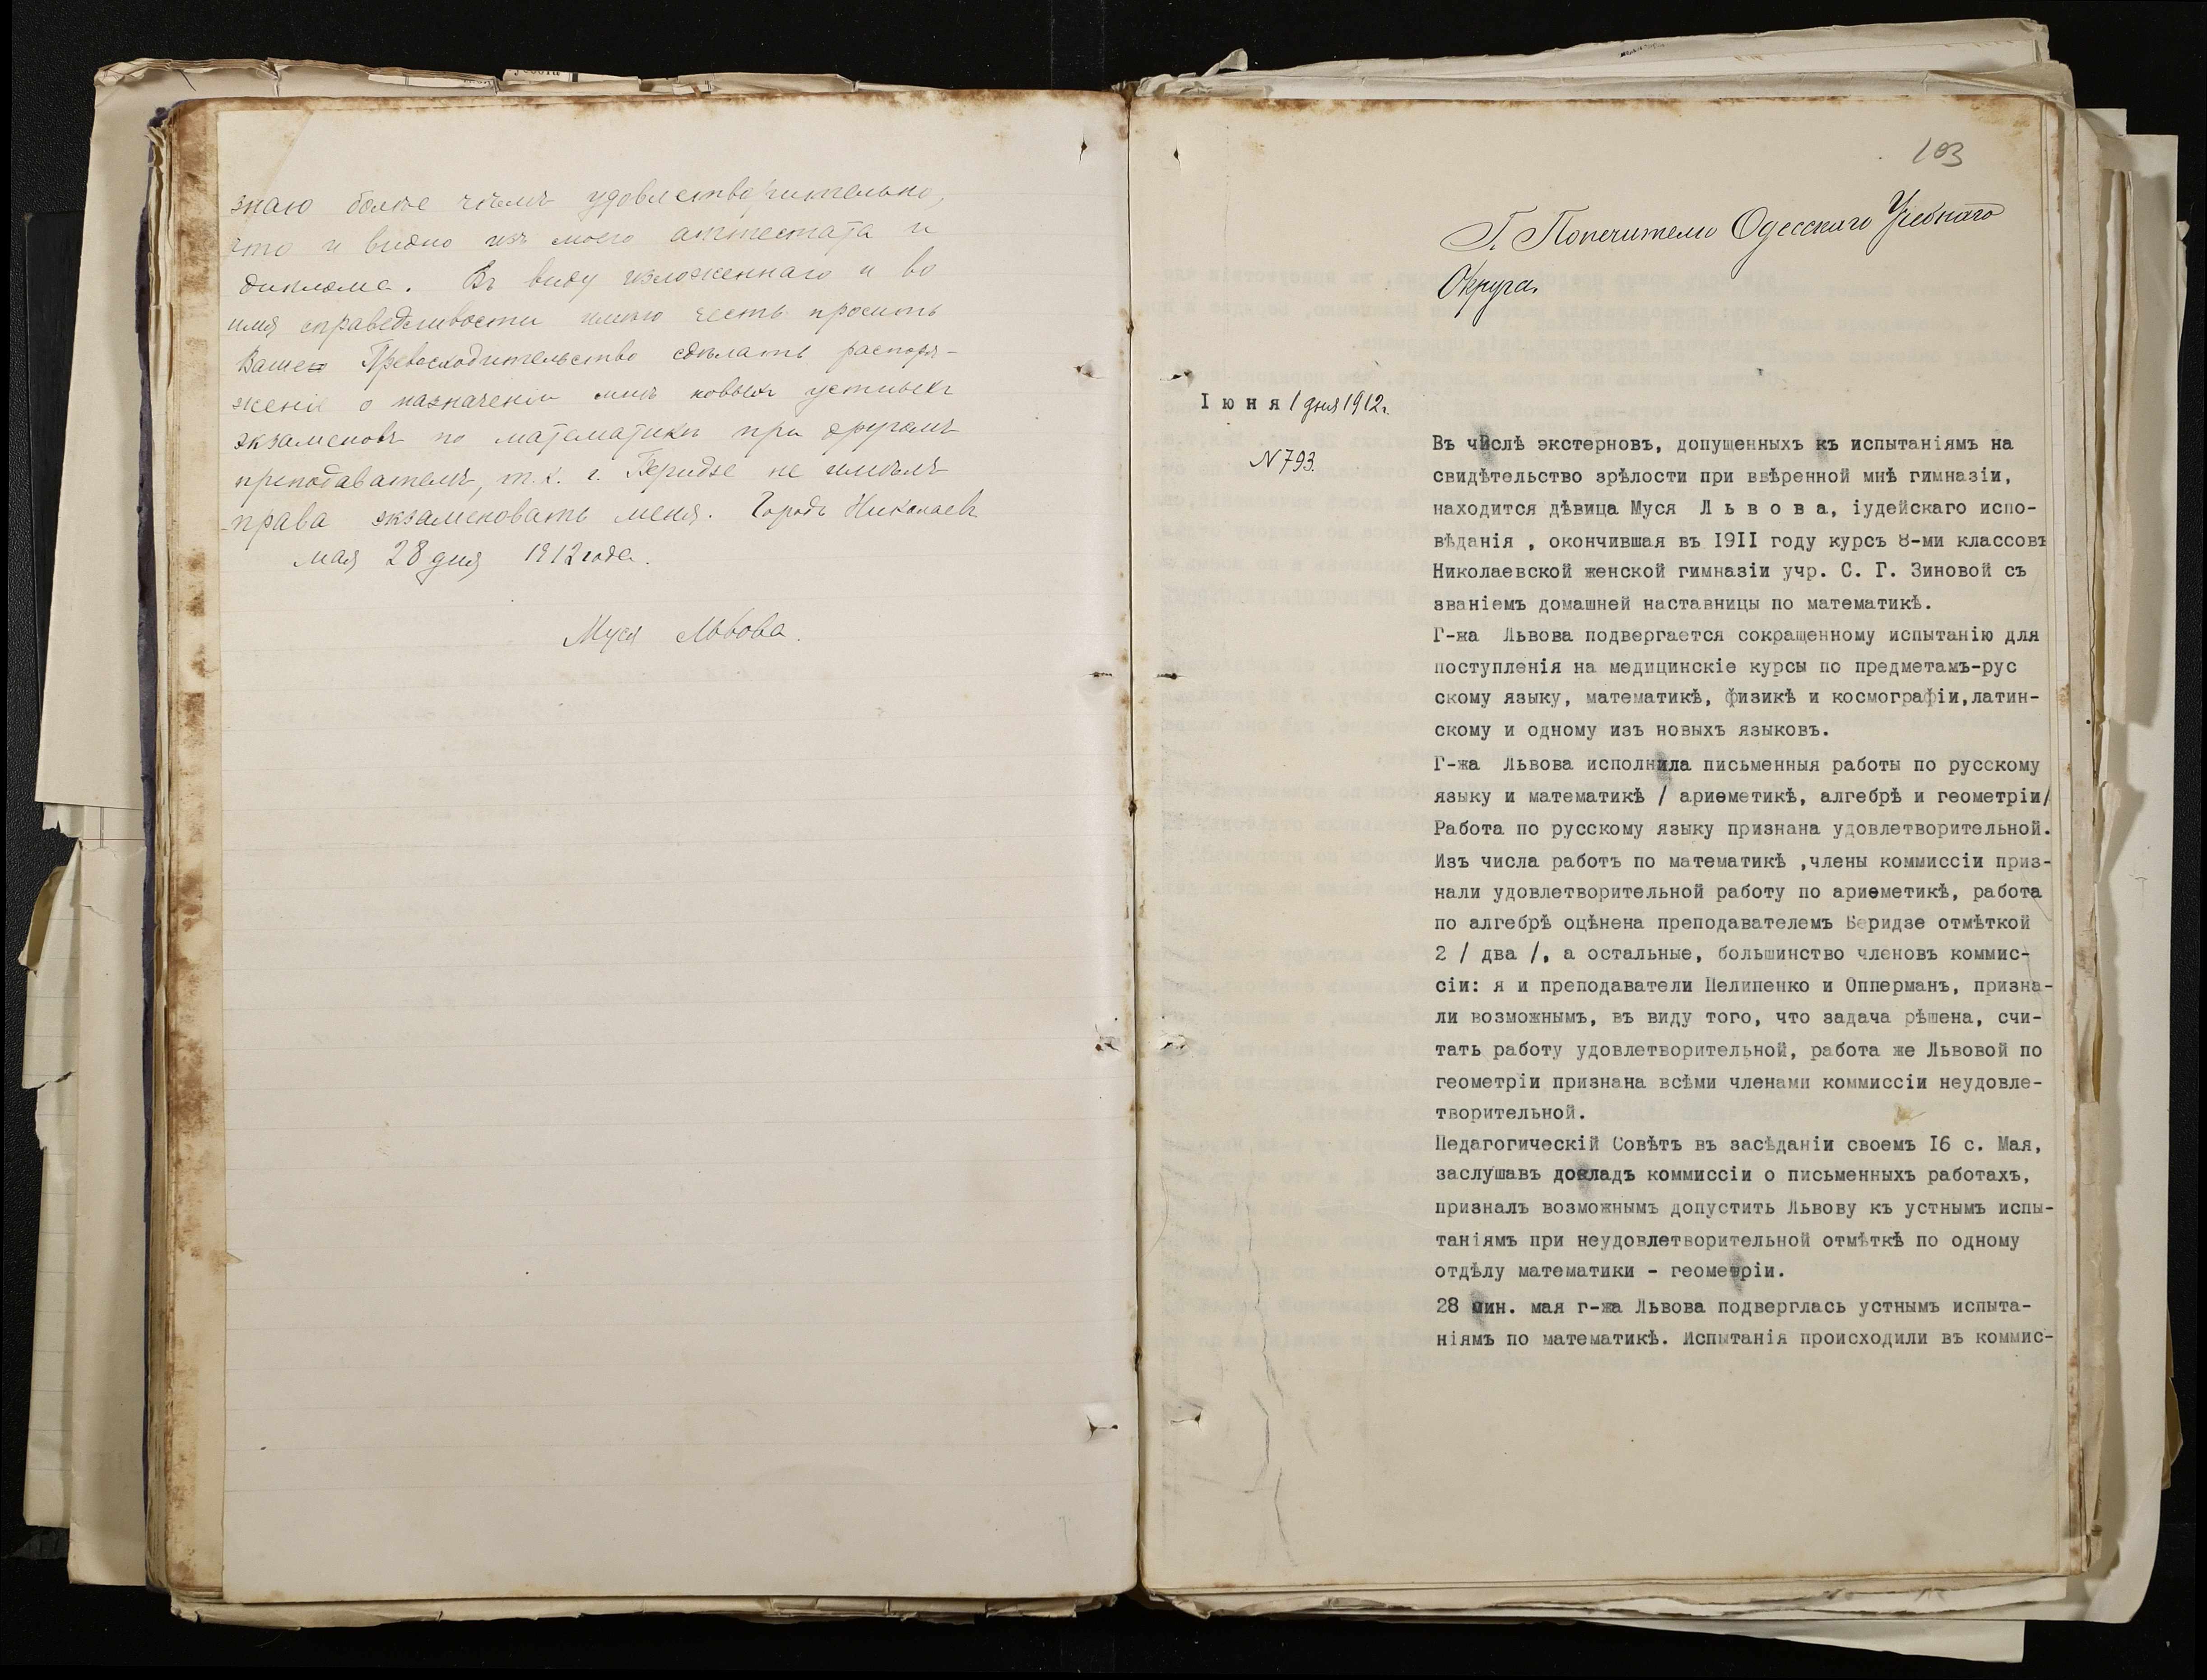 знаю болѣе чѣмъ удовлетворительно,
что и видно изъ моего аттестата и
диплома. Въ виду изложеннаго и во
имя справедливости имѣю честь просить
Ваше Превосходительство сдѣлать распоря-
женіе о назначеніи мнѣ новыхъ устныхъ
экзаменовъ по математикѣ при другомъ
преподавателѣ, т.к. г. Беридзе не имѣлъ
права экзаменовать меня. Городъ Николаевъ
мая 28 дня 1912 года.
Муся Львова.
103
Г. Попечителю Одесскаго Учебнаго
Округа.
Іюня 1 дня 1912 г.
N 793.
Въ числѣ экстерновъ, допущенныхъ къ испытаніямъ на
свидѣтельство зрѣлости при ввѣренной мнѣ гимназіи,
находится дѣвица Муся Л ь в о в а, іудейскаго испо-
вѣданія , окончившая въ I9II году курсъ 8-ми классовъ
Николаевской женской гимназіи учр. С. Г. Зиновой съ
званіемъ домашней наставницы по математикѣ.
Г-жа Львова подвергается сокращенному испытанію для
поступленія на медицинскіе курсы по предметамъ-рус
скому языку, математикѣ, физикѣ и космографіи,латин-
скому и одному изъ новыхъ языковъ.
Г-жа Львова исполнила письменныя работы по русскому
языку и математикѣ / ариѳметикѣ, алгебрѣ и геометріи/
Работа по русскому языку признана удовлетворительной.
Изъ числа работъ по математикѣ ,члены коммиссіи приз-
нали удовлетворительной работу по ариѳметикѣ, работа
по алгебрѣ оцѣнена преподавателемъ Беридзе отмѣткой
2 / два /, а остальные, большинство членовъ коммис-
сіи: я и преподаватели Пелипенко и Опперманъ, призна-
ли возможнымъ, въ виду того, что задача рѣшена, счи-
тать работу удовлетворительной, работа же Львовой по
геометріи признана всѣми членами коммиссіи неудовле-
творительной.
Педагогическій Совѣтъ въ засѣданіи своемъ I6 с. Мая,
заслушавъ докладъ коммиссіи о письменныхъ работахъ,
призналъ возможнымъ допустить Львову къ устнымъ испы-
таніямъ при неудовлетворительной отмѣткѣ по одному
отдѣлу математики - геометріи.
28 мин. мая г-жа Львова подверглась устнымъ испыта-
ніямъ по математикѣ. Испытанія происходили въ коммис-